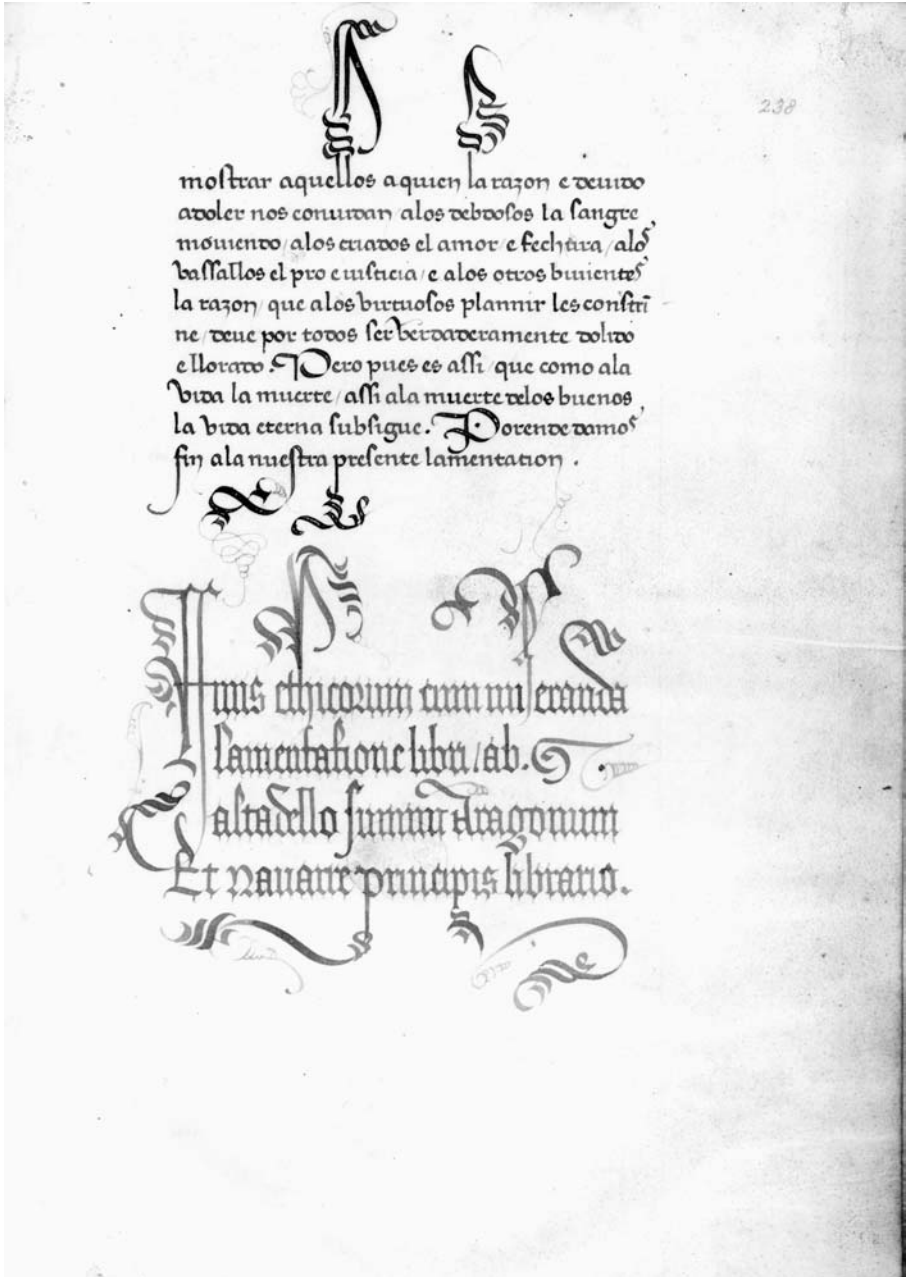 238
mostrar aquellos a quien la razon e deuido
a doler nos conuidan / a los debdosos la sangre
mouiendo / a los criados el amor / e fechura / a los
vassallos el pro e iusticia / e a los otros biuientes
la razon / que a los virtuosos plannir les constri
ne / deue por todos ser verdaderamente dolido
e llorado . Pero pues es assi / que como a la
vida la muerte / assi a la muerte delos buenos
la vida eterna subsigue . Porende damos
fin a la nuestra presente lamentation .
Finis ethicorum cum miseranda
lamentatione libri / ab . G .
a stadello summi Aragonum
Et Nauarre principis librario .